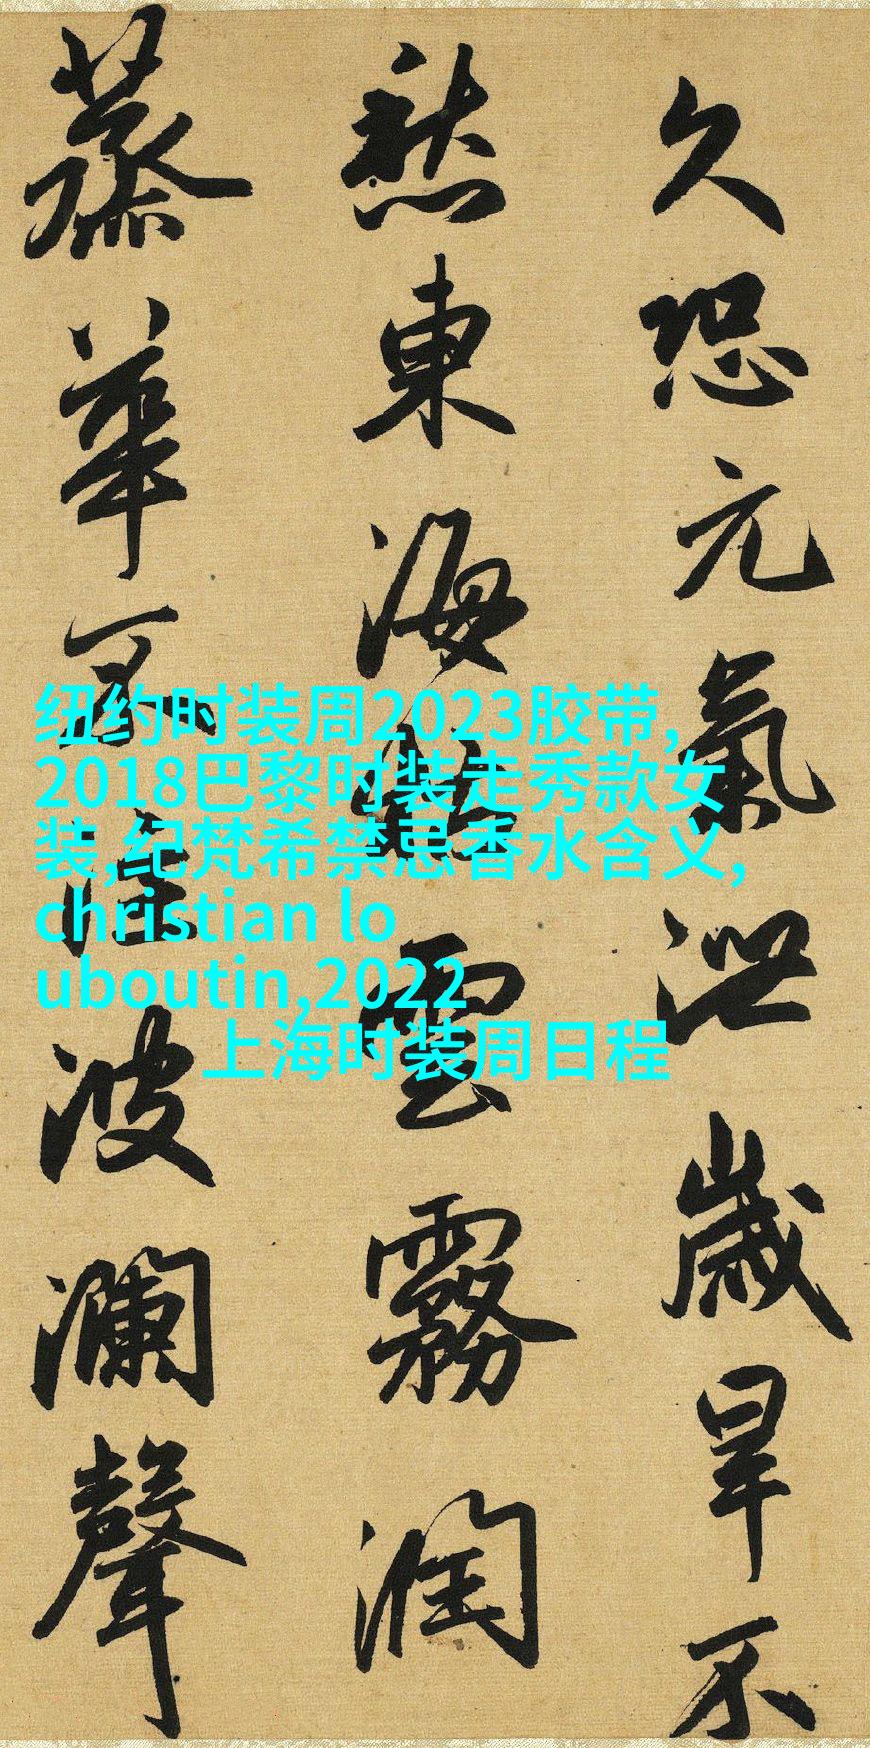 久恐元氣泄歲旱不
愁東海枯雲霧潤
蒸華不注波瀾聲
纽约时装周2023胶带,
2018巴黎时装走秀款女
装,纪梵希禁忌香水含义,
christian lo
uboutin,2022
上海时装周日程